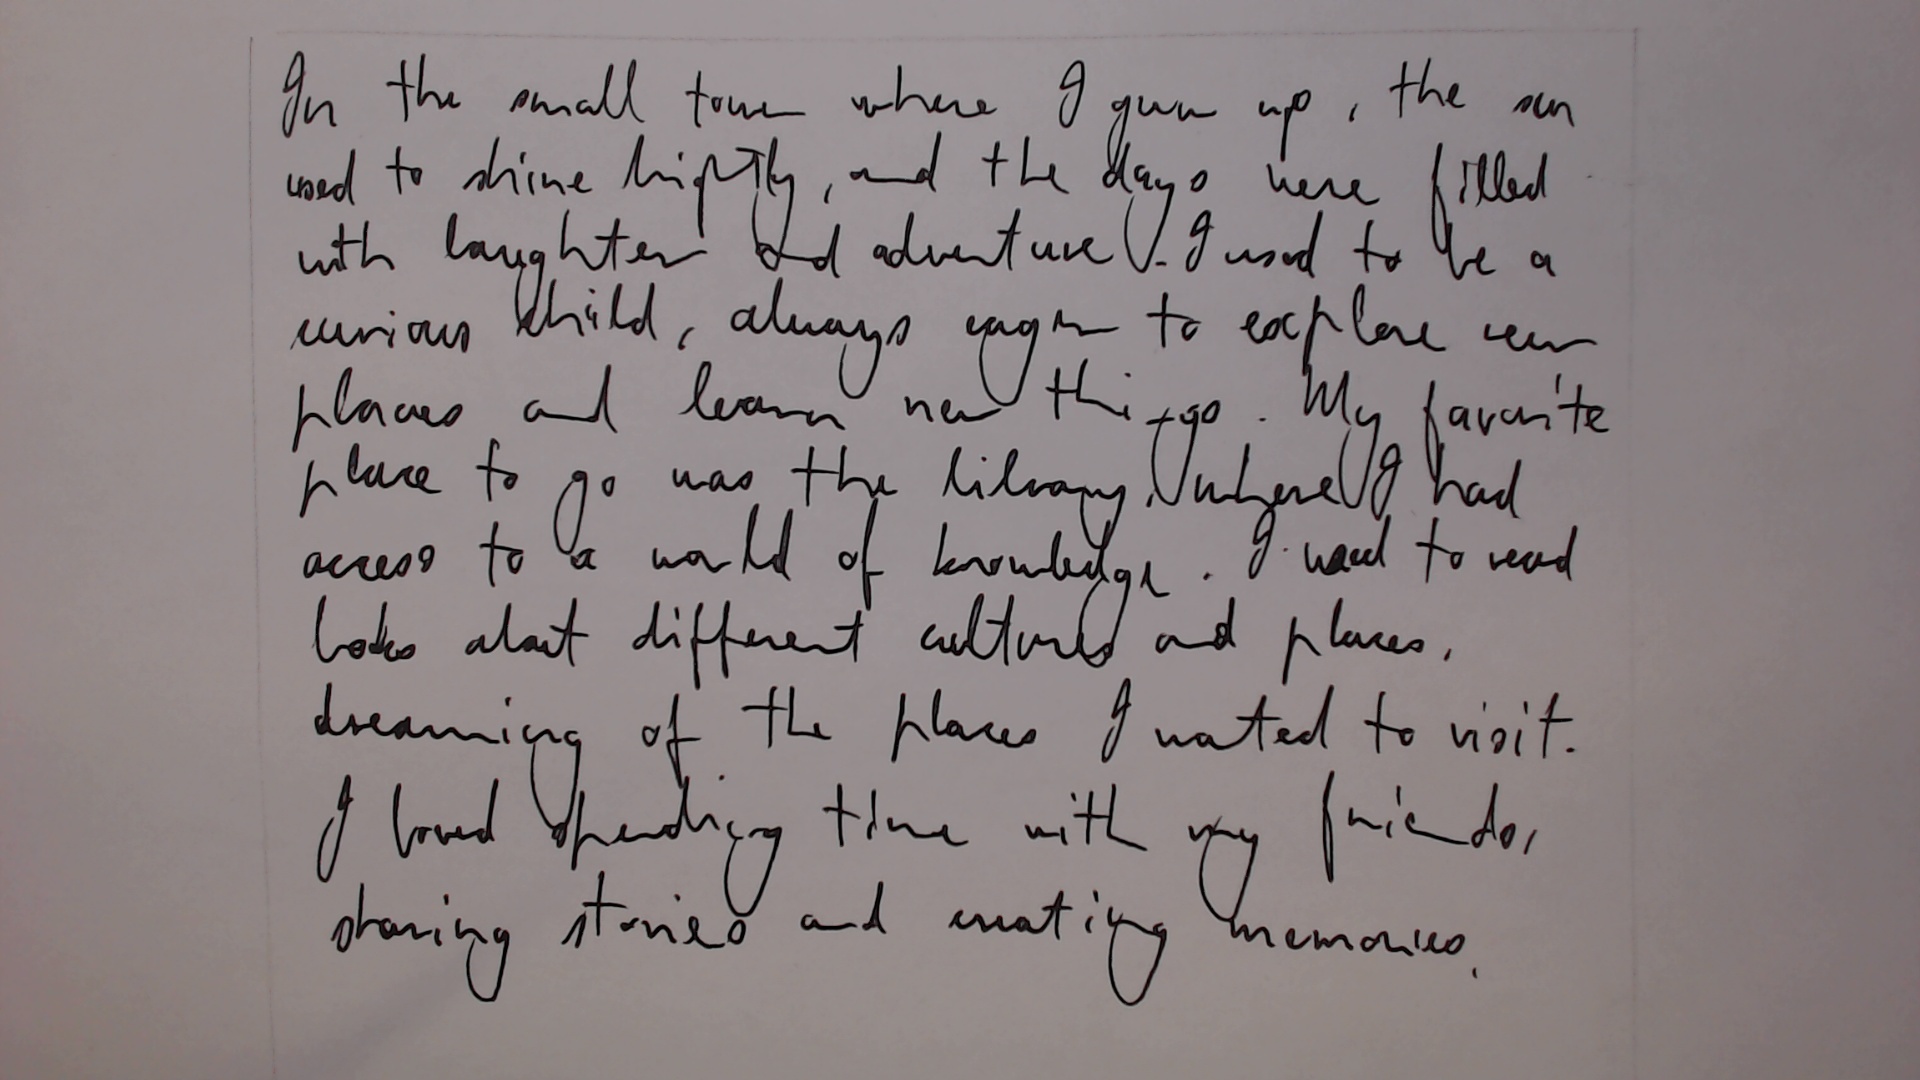 In the small town where I grew up, the sun
used to shine brightly, and the days were filled
with laughter and adventure. I used to be a
curious child, always eager to explore new
places and learn new things. My favorite
place to go was the library, where I had
access to a world of knowledge. I used to read
books about different cultures and places,
dreaming of the places I wanted to visit.
I loved spending time with my friends,
sharing stories and creating memories.